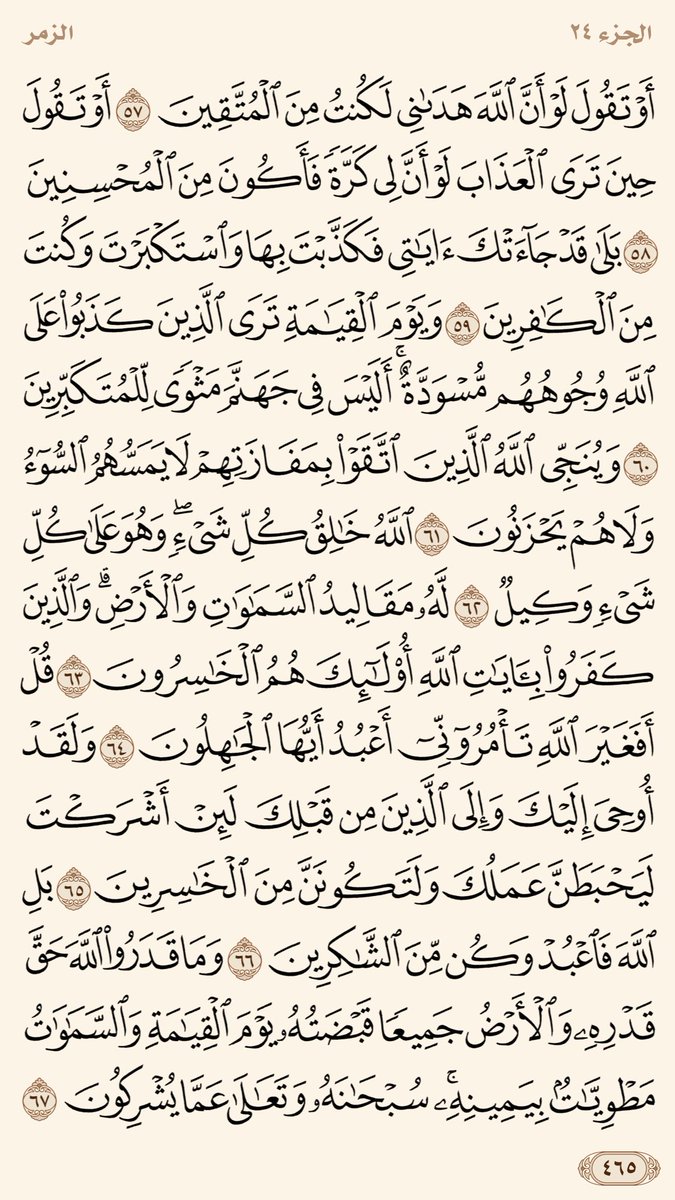 الجزء ٢٤
الزمر
أَوْ تَقُولَ لَوْ أَنَّ ٱللَّهَ هَدَىٰنِى لَكُنتُ مِنَ ٱلْمُتَّقِينَ ٥٧ أَوْ تَقُولَ
حِينَ تَرَى ٱلْعَذَابَ لَوْ أَنَّ لِى كَرَّةً فَأَكُونَ مِنَ ٱلْمُحْسِنِينَ
٥٨ بَلَىٰ قَدْ جَآءَتْكَ ءَايَـٰتِى فَكَذَّبْتَ بِهَا وَٱسْتَكْبَرْتَ وَكُنتَ
مِنَ ٱلْكَـٰفِرِينَ ٥٩ وَيَوْمَ ٱلْقِيَـٰمَةِ تَرَى ٱلَّذِينَ كَذَبُوا۟ عَلَى
ٱللَّهِ وُجُوهُهُم مُّسْوَدَّةٌ ۚ أَلَيْسَ فِى جَهَنَّمَ مَثْوًى لِّلْمُتَكَبِّرِينَ
٦٠ وَيُنَجِّى ٱللَّهُ ٱلَّذِينَ ٱتَّقَوْا۟ بِمَفَازَتِهِمْ لَا يَمَسُّهُمُ ٱلسُّوٓءُ
وَلَا هُمْ يَحْزَنُونَ ٦١ ٱللَّهُ خَـٰلِقُ كُلِّ شَىْءٍ ۖ وَهُوَ عَلَىٰ كُلِّ
شَىْءٍ وَكِيلٌ ٦٢ لَّهُۥ مَقَالِيدُ ٱلسَّمَـٰوَٰتِ وَٱلْأَرْضِ ۗ وَٱلَّذِينَ
كَفَرُوا۟ بِـَٔايَـٰتِ ٱللَّهِ أُو۟لَـٰٓئِكَ هُمُ ٱلْخَـٰسِرُونَ ٦٣ قُلْ
أَفَغَيْرَ ٱللَّهِ تَأْمُرُوٓنِّىٓ أَعْبُدُ أَيُّهَا ٱلْجَـٰهِلُونَ ٦٤ وَلَقَدْ
أُوحِىَ إِلَيْكَ وَإِلَى ٱلَّذِينَ مِن قَبْلِكَ لَئِنْ أَشْرَكْتَ
لَيَحْبَطَنَّ عَمَلُكَ وَلَتَكُونَنَّ مِنَ ٱلْخَـٰسِرِينَ ٦٥ بَلِ
ٱللَّهَ فَٱعْبُدْ وَكُن مِّنَ ٱلشَّـٰكِرِينَ ٦٦ وَمَا قَدَرُوا۟ ٱللَّهَ حَقَّ
قَدْرِهِۦ وَٱلْأَرْضُ جَمِيعًا قَبْضَتُهُۥ يَوْمَ ٱلْقِيَـٰمَةِ وَٱلسَّمَـٰوَٰتُ
مَطْوِيَّـٰتٌۢ بِيَمِينِهِۦ ۚ سُبْحَـٰنَهُۥ وَتَعَـٰلَىٰ عَمَّا يُشْرِكُونَ ٦٧
٤٦٥